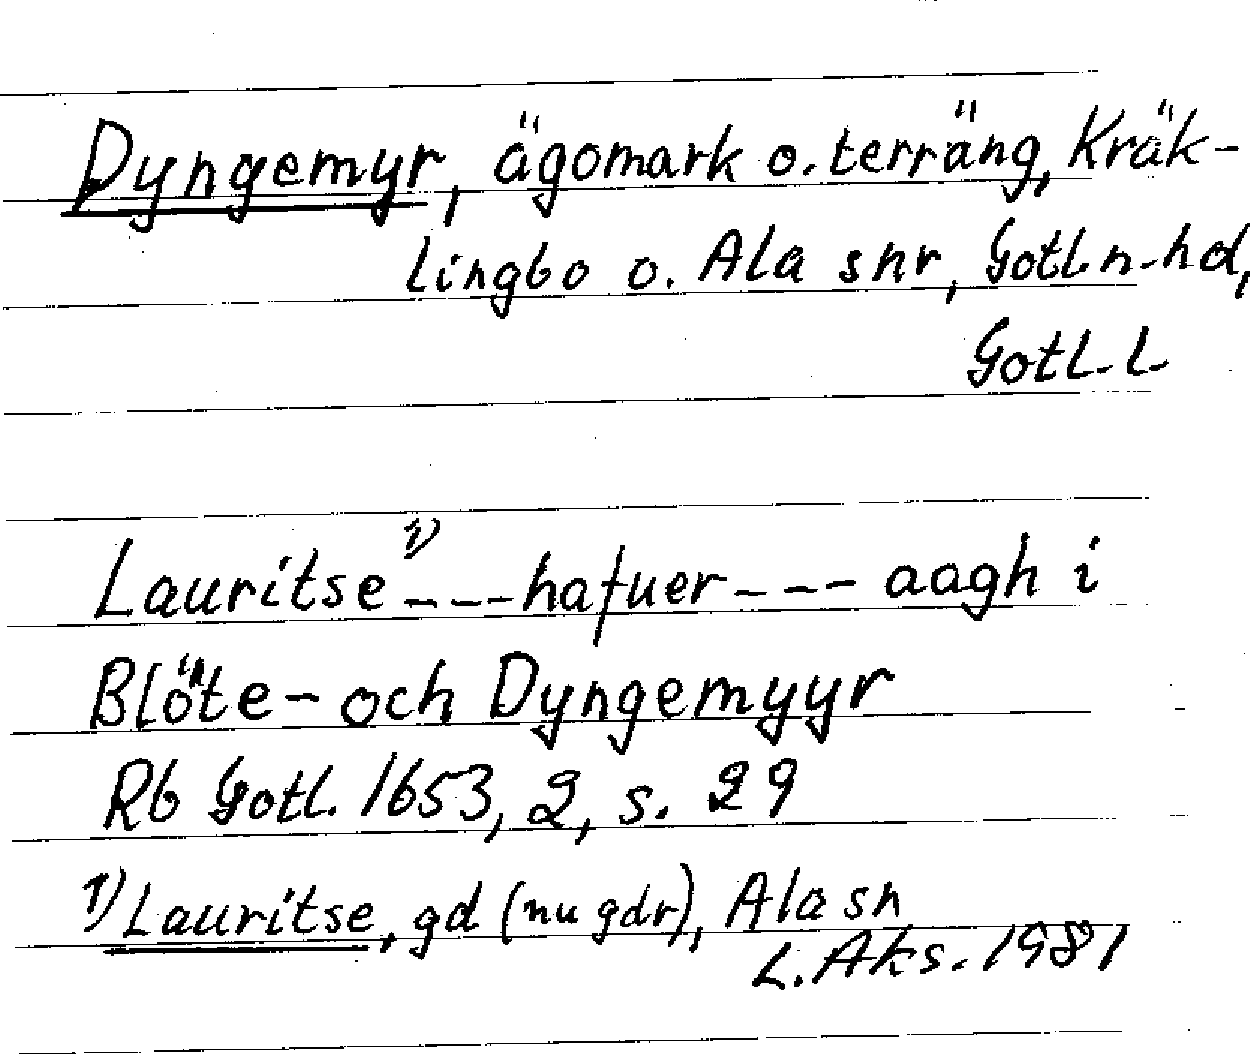 Dyngemyr, ägomark o. terräng, Kräk-
lingbo o. Ala snr, Gotl. n. hd,
Gotl. l.
Lauritse 1) --- hafuer --- aagh i
Blöte- och Dyngemyyr
Rb Gotl. 1653, 2, s. 29
1) Lauritse, gd (nu gdr), Ala sn
L. Aks. 1981